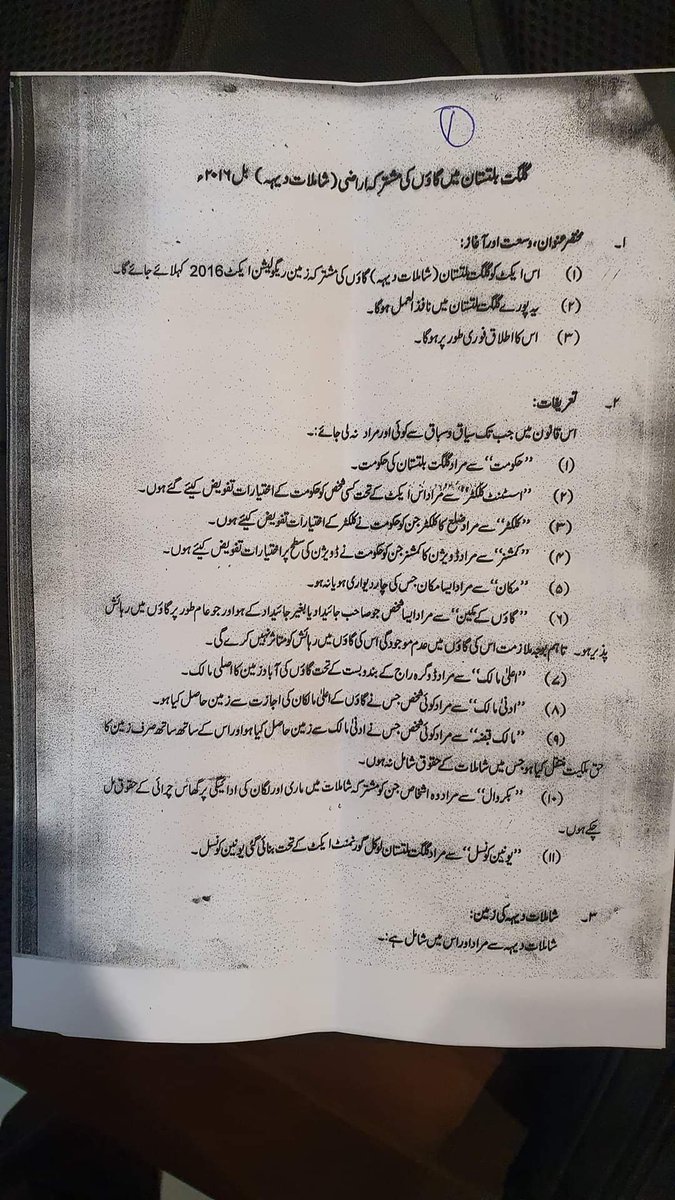 ①
گلگت بلتستان میں گاؤں کی مشترکہ اراضی (شاملات دیہہ) بل ۲۰۱۶ء
۱۔ مختصر عنوان، وسعت اور آغاز:
(۱) اس ایکٹ کو گلگت بلتستان (شاملات دیہہ) گاؤں کی مشترکہ زمین ریگولیشن ایکٹ 2016 کہلائے جائے گا۔
(۲) یہ پورے گلگت بلتستان میں نافذ العمل ہوگا۔
(۳) اس کا اطلاق فوری طور پر ہوگا۔
۲۔ تعریفات:
اس قانون میں جب تک سیاق و سباق سے کوئی اور مراد نہ لی جائے:۔
(۱) ’’حکومت‘‘ سے مراد گلگت بلتستان کی حکومت۔
(۲) ’’اسسٹنٹ کلکٹر‘‘ سے مراد اس ایکٹ کے تحت کسی شخص کو حکومت کے اختیارات تفویض کیئے گئے ہوں۔
(۳) ’’کلکٹر‘‘ سے مراد ضلع کا کلکٹر جن کو حکومت نے کلکٹر کے اختیارات تفویض کیئے ہوں۔
(۴) ’’کمشنر‘‘ سے مراد ڈویژن کا کمشنر جن کو حکومت نے ڈویژن کی سطح پر اختیارات تفویض کیئے ہوں۔
(۵) ’’مکان‘‘ سے مراد ایسا مکان جس کی چار دیواری ہو یا نہ ہو۔
(۶) ’’گاؤں کے مکین‘‘ سے مراد ایسا شخص جو صاحب جائیداد یا بغیر جائیداد کے ہو اور جو عام طور پر گاؤں میں رہائش
پذیر ہو۔ تاہم بوجہ ملازمت اس کی گاؤں میں عدم موجودگی اس کی گاؤں میں رہائش کو متاثر نہیں کرے گی۔
(۷) ’’اعلیٰ مالک‘‘ سے مراد ڈوگرہ راج کے بندوبست کے تحت گاؤں کی آباد زمین کا اصلی مالک۔
(۸) ’’ادنیٰ مالک‘‘ سے مراد کوئی شخص جس نے گاؤں کے اعلیٰ مالکان کی اجازت سے زمین حاصل کیا ہو۔
(۹) ’’مالک قبضہ‘‘ سے مراد کوئی شخص جس نے ادنیٰ مالک سے زمین حاصل کیا ہو اور اس کے ساتھ ساتھ صرف زمین کا
حق ملکیت منتقل کیا ہو جس میں شاملات کے حقوق شامل نہ ہوں۔
(۱۰) ’’بکروال‘‘ سے مراد وہ اشخاص جن کو مشترکہ شاملات میں ماری اور لگان کی ادائیگی پر گھاس چرائی کے حقوق مل
چکے ہوں۔
(۱۱) ’’یونین کونسل‘‘ سے مراد گلگت بلتستان لوکل گورنمنٹ ایکٹ کے تحت بنائی گئی یونین کونسل۔
۳۔ شاملات دیہہ کی زمین:
شاملات دیہہ سے مراد اور اس میں شامل ہے:۔